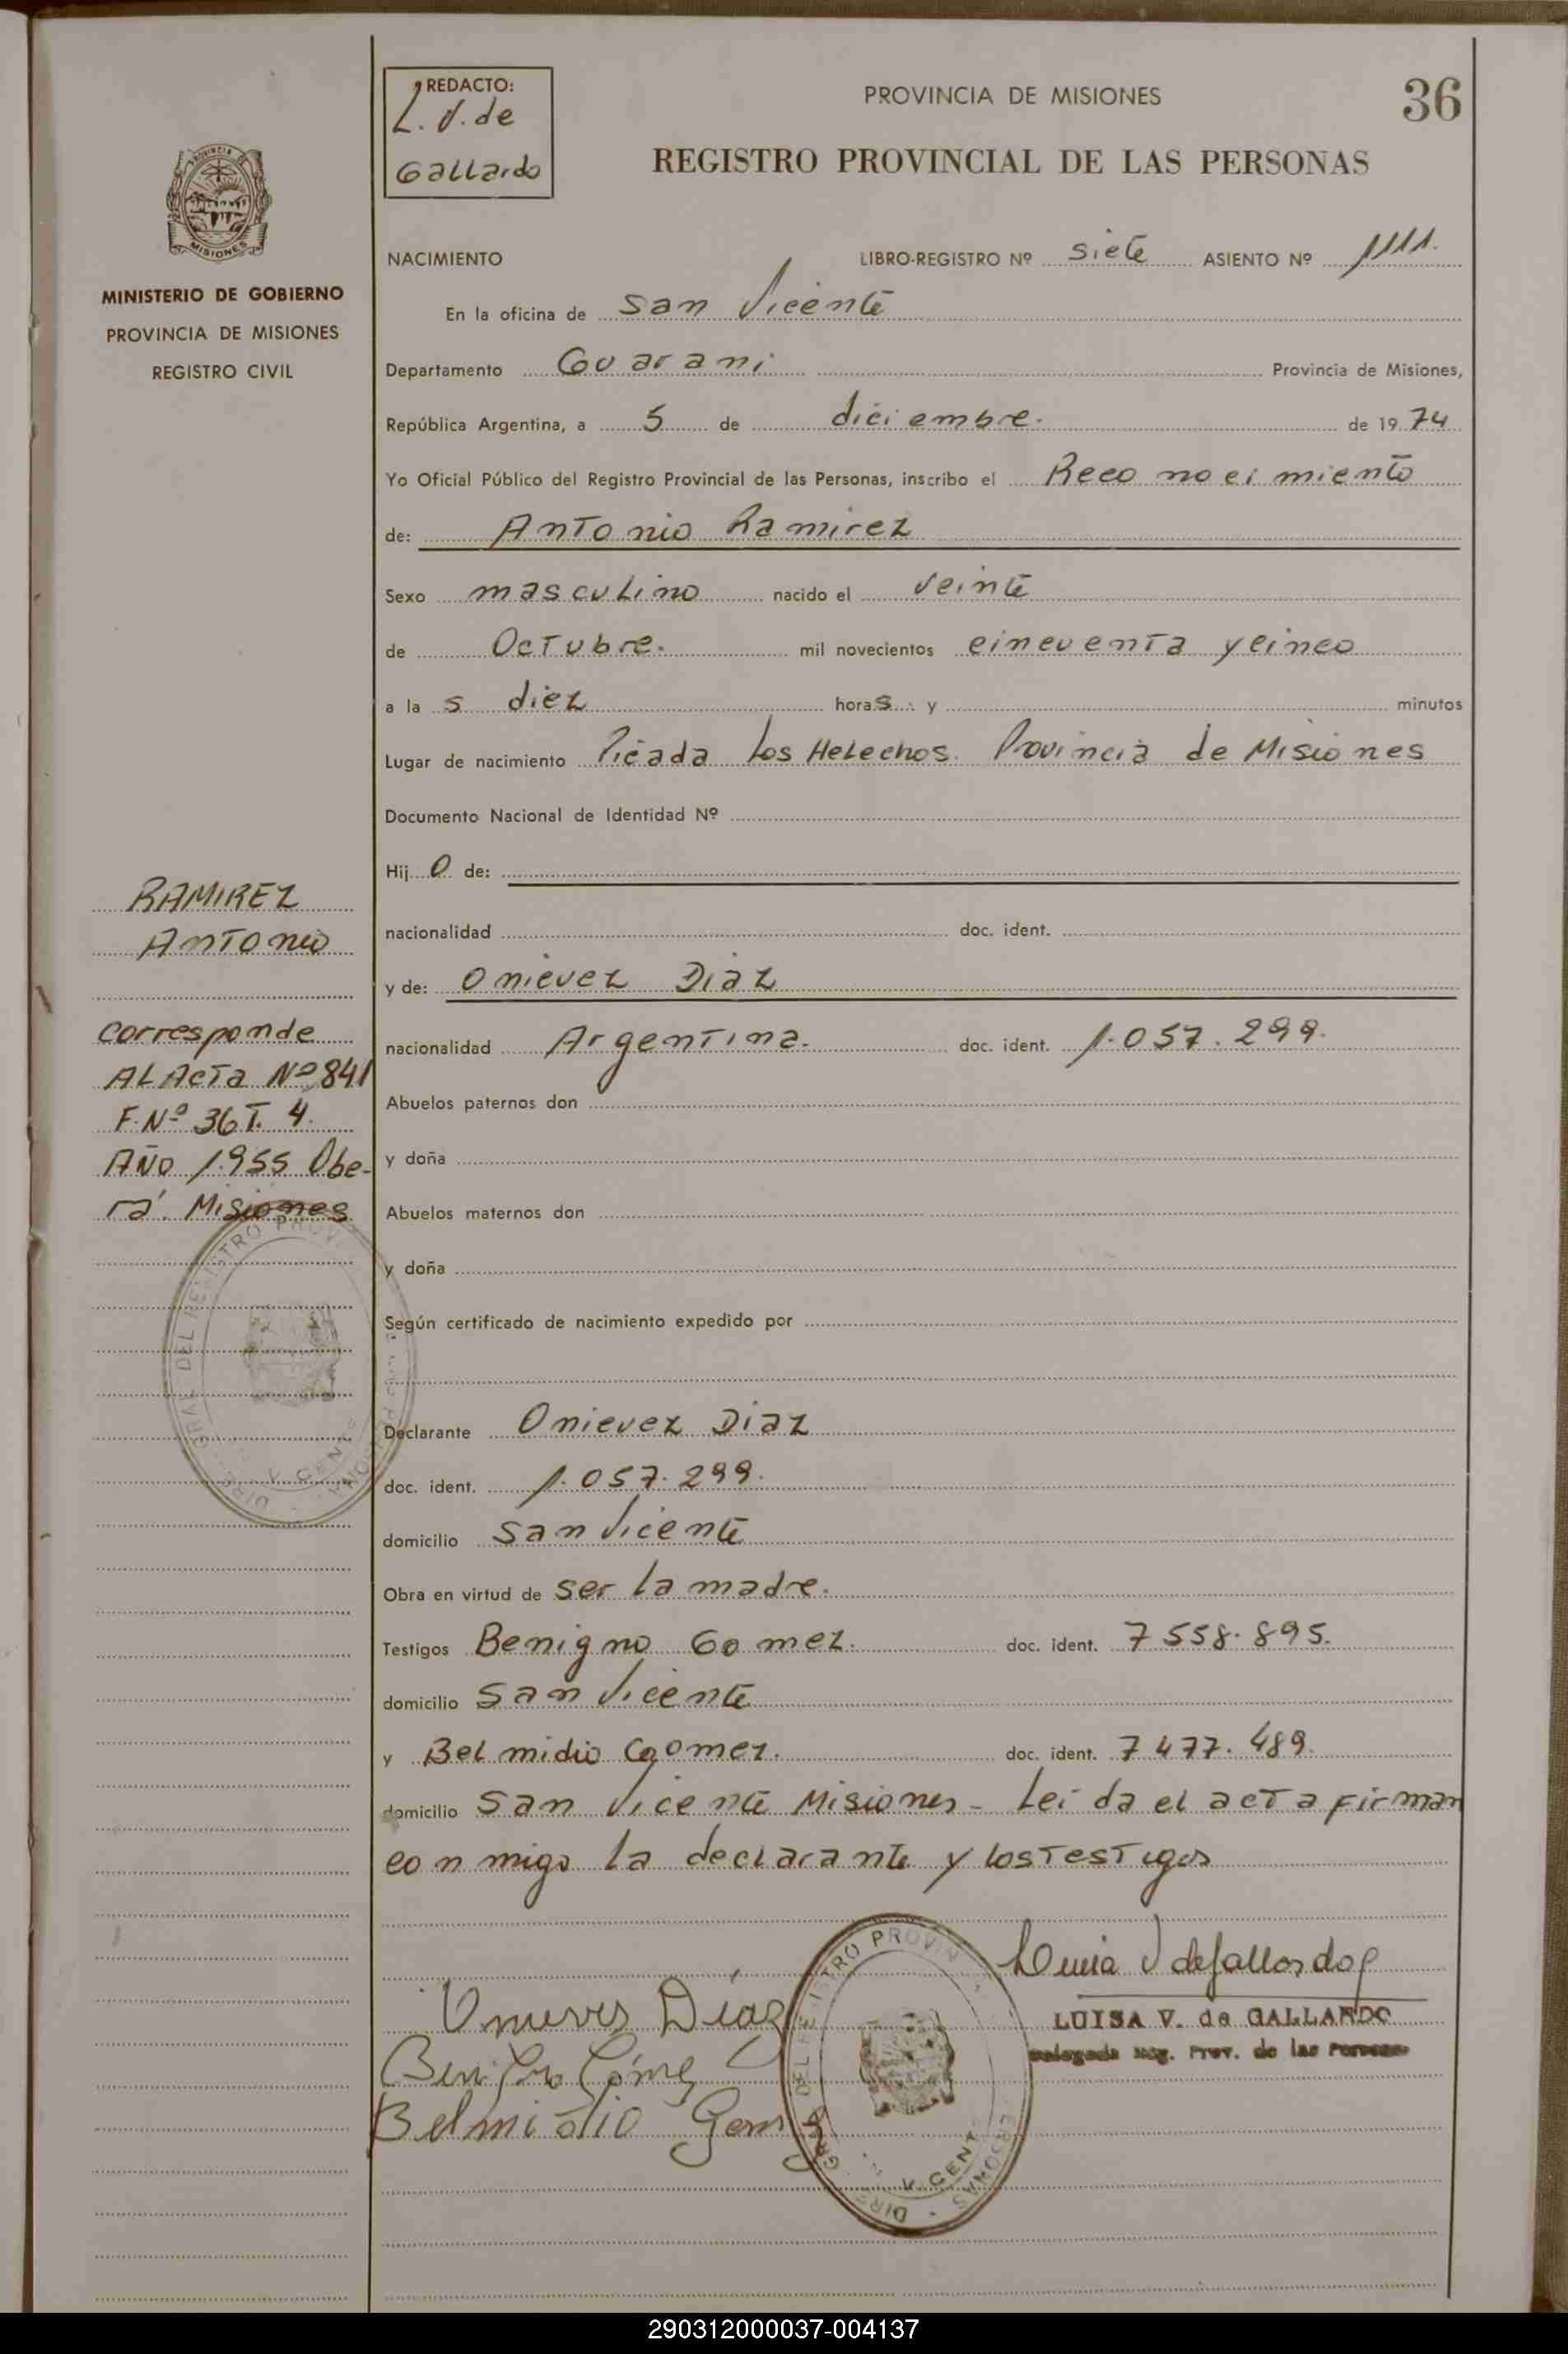 REDACTO:
L. V. de
Gallardo
PROVINCIA DE MISIONES
36
REGISTRO PROVINCIAL DE LAS PERSONAS
MISIONES
MINISTERIO DE GOBIERNO
PROVINCIA DE MISIONES
REGISTRO CIVIL
NACIMIENTO LIBRO-REGISTRO Nº siete ASIENTO Nº 1111.
En la oficina de San Vicente
Departamento Guarani Provincia de Misiones,
República Argentina, a 5 de diciembre. de 1974
Yo Oficial Público del Registro Provincial de las Personas, inscribo el Reconocimiento
de: Antonio Ramirez
Sexo masculino nacido el veinte
de Octubre. mil novecientos cincuenta y cinco
a la s diez horas. y minutos
Lugar de nacimiento Picada Los Helechos. Provincia de Misiones
Documento Nacional de Identidad Nº
Hij o de:
nacionalidad doc. ident.
y de: Onievez Diaz
nacionalidad Argentina. doc. ident. 1.057.299.
Abuelos paternos don
y doña
Abuelos maternos don
y doña
Según certificado de nacimiento expedido por
Declarante Onievez Diaz
doc. ident. 1.057.299.
domicilio San Vicente
Obra en virtud de ser la madre.
Testigos Benigno Gomez. doc. ident. 7558.895.
domicilio San Vicente
y Belmidio Gomez. doc. ident. 7477.489.
domicilio San Vicente Misiones - Leida el acta firman
conmigo la declarante y los testigos
RAMIREZ
Antonio
corresponde
AL Acta Nº 841
F. Nº 36 T. 4.
AÑO 1.955 Obe-
rá. Misiones
Díaz
Belmidio
LUISA V. de GALLARDO
Delegada Reg. Prov. de las Personas
290312000037-004137